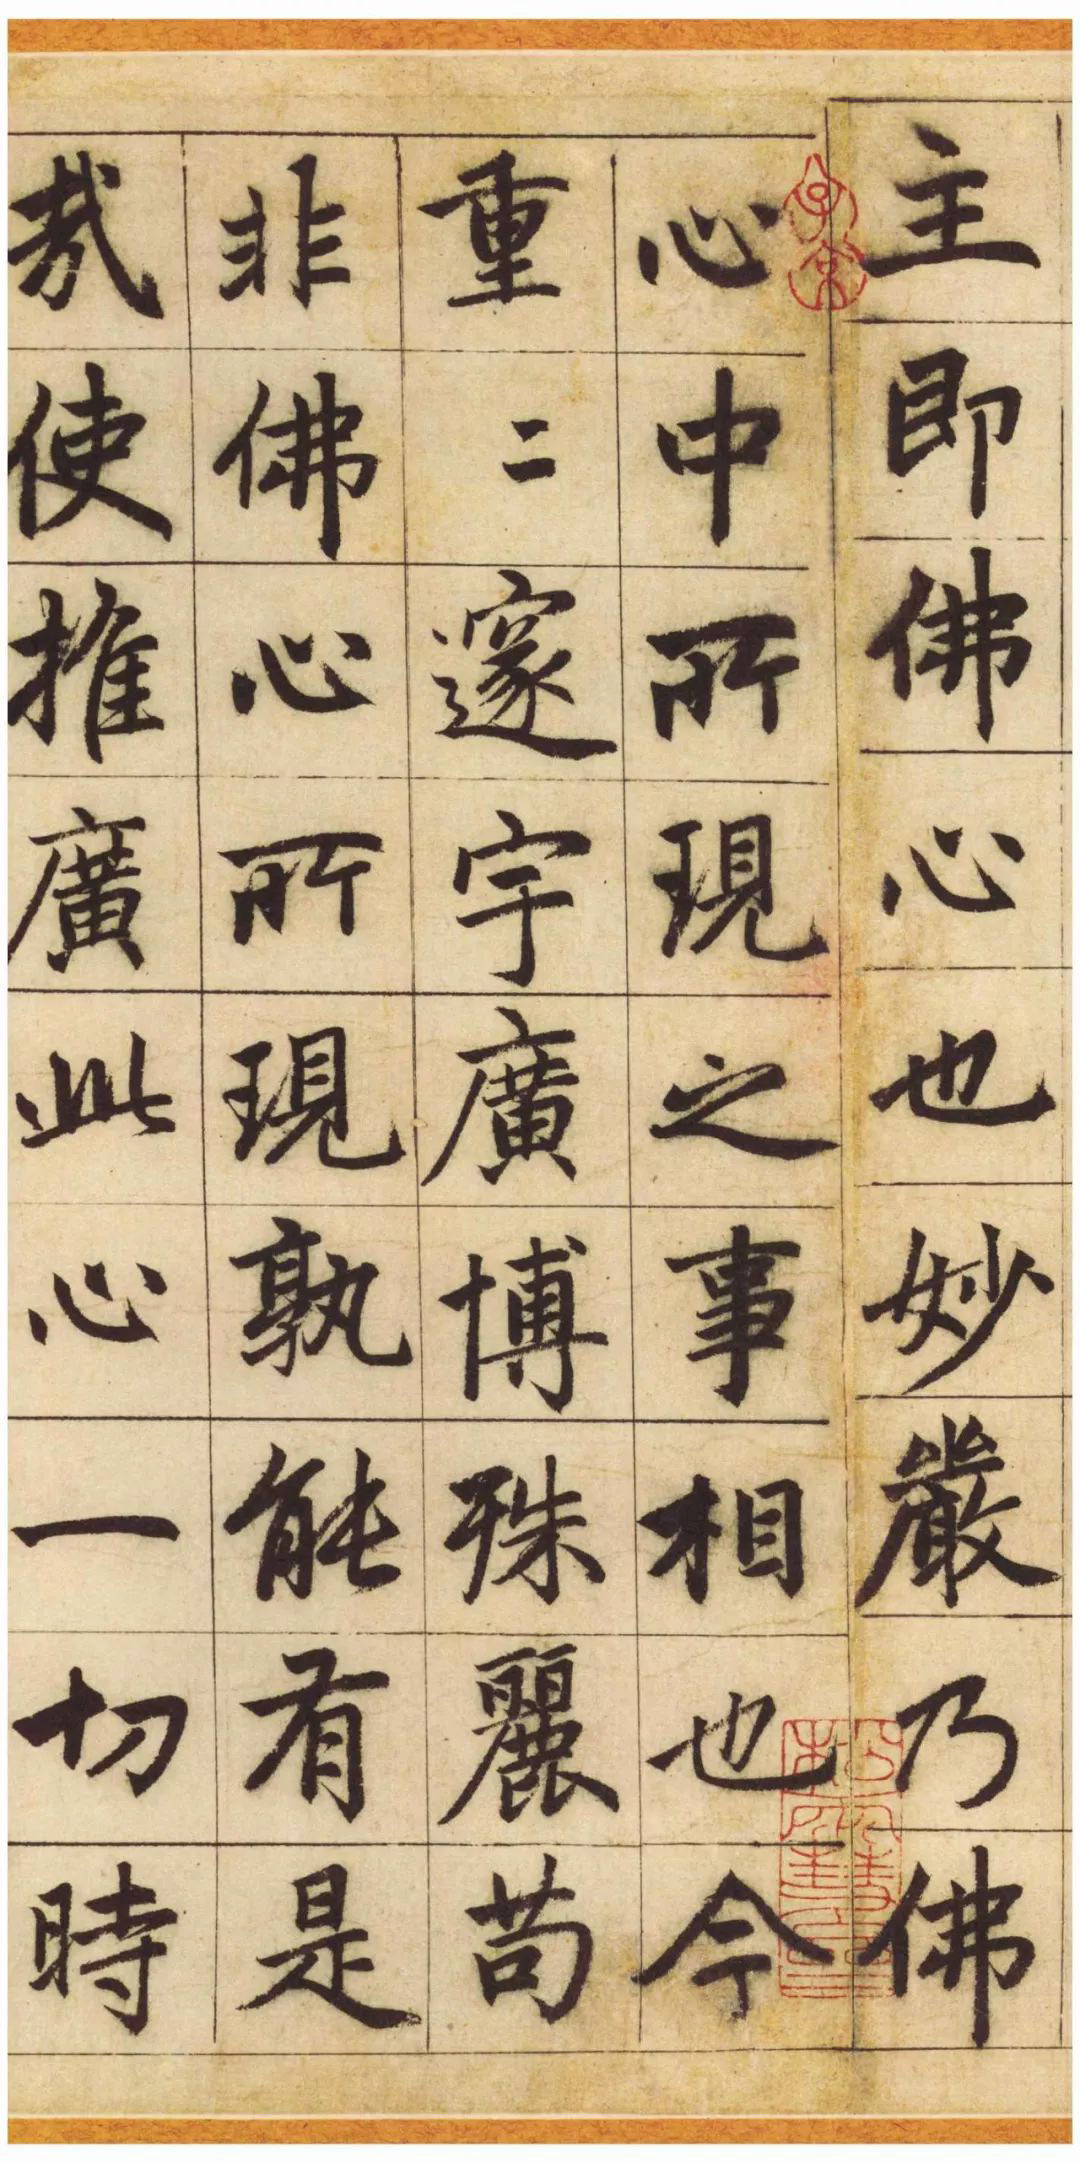 主即佛心也妙嚴乃佛
心中所現之事相也今
重二邃宇廣博殊麗苟
非佛心所現孰能有是
哉使推廣此心一切時